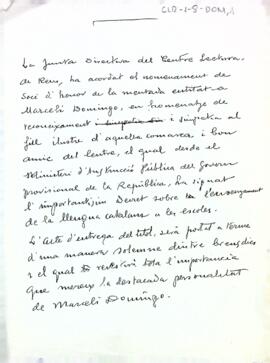 CLR-1-8-DOM,1
La Junta Directiva del Centre Lectura,
de Reus, ha acordat el nomenament de
Soci d'honor de la mentada entitat a
Marcelí Domingo, en homenatge de
reconeixement i simpatia al
fill ilustre d'aquella comarca, i bon
amic del Centre, el qual desde el
Ministeri d'Instrucció Pública del Govern
provisional de la República, ha signat
l'importantíssim Decret sobre l'ensenyament
de la llengua catalana a les escoles.
L'acte d'entrega del títol, serà portat a terme
d'una manera solemne dintre breus dies
i el qual revestirà tota l'importancia
que mereix la destacada personalitat
de Marcelí Domingo.